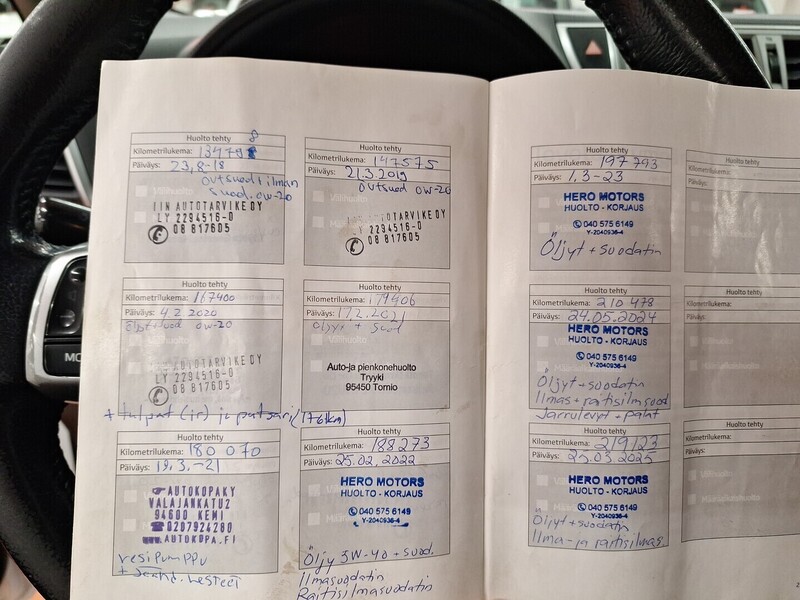 Huolto tehty
Kilometrilukema:
Päiväys: 23,8-18
suod. 0w-20
IIN AUTOTARVIKE OY
LY 2294516-0
08 817605
Huolto tehty
Kilometrilukema: 147575
Päiväys: 21.3.2019
0w-20
AUTOTARVIKE OY
LY 2294516-0
08 817605
Huolto tehty
Kilometrilukema: 167400
Päiväys: 4.2.2020
0w-20
AUTOTARVIKE OY
LY 2294516-0
08 817605
+ tulpat (ir) ja
Huolto tehty
Kilometrilukema: 179406
Päiväys: 17.2.2021
Öljyt + suod
Auto-ja pienkonehuolto
Tryyki
95450 Tornio
Huolto tehty
Kilometrilukema: 180 070
Päiväys: 19.3.-21
AUTOKOPAKY
VALAJANKATU2
94600 KEMI
0207924280
WWW.AUTOKOPA.FI
vesipumppu
Huolto tehty
Kilometrilukema: 188273
Päiväys: 25.02.2022
HERO MOTORS
HUOLTO - KORJAUS
040 575 6149
Y-2040936-4
Öljy 3W-40 + suod.
Ilmasuodatin
Raitisilmasuodatin
Huolto tehty
Kilometrilukema: 197 793
Päiväys: 1,3-23
HERO MOTORS
HUOLTO - KORJAUS
040 575 6149
Y-2040936-4
Öljyt + suodatin
Huolto tehty
Kilometrilukema: 210 478
Päiväys: 24.05.2024
HERO MOTORS
HUOLTO - KORJAUS
040 575 6149
Y-2040936-4
Öljyt + suodatin
Ilmas + raitisilmsuod
Jarrulevyt + palat
Huolto tehty
Kilometrilukema: 219123
Päiväys: 25.03.2025
HERO MOTORS
HUOLTO - KORJAUS
040 575 6149
Y-2040936-4
Öljyt + suodatin
Ilma- ja raitisilmas.
Huolto tehty
Kilometrilukema:
Päiväys:
Huolto tehty
Kilometrilukema:
Päiväys:
Huolto tehty
Kilometrilukema:
Päiväys: